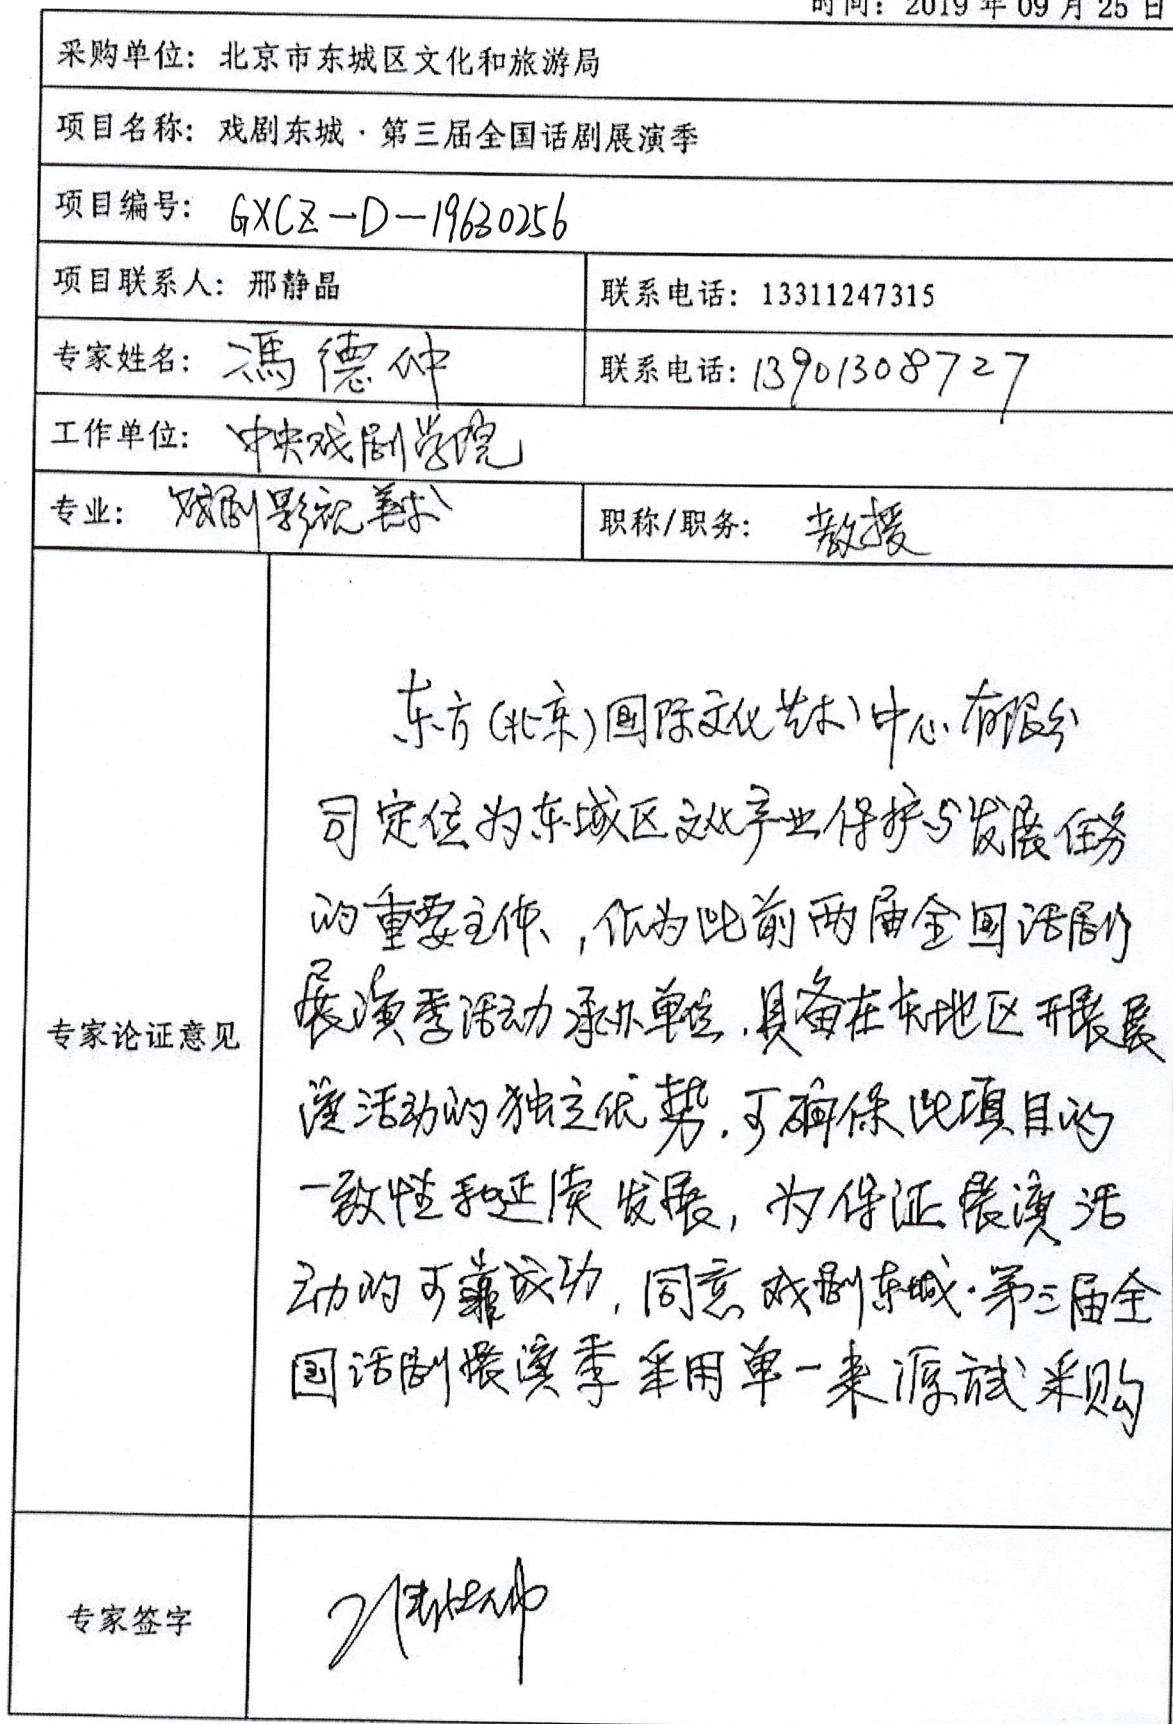 时间：2019 年 09 月 25 日
采购单位：北京市东城区文化和旅游局
项目名称：戏剧东城·第三届全国话剧展演季
项目编号：GXCZ-D-19630256
项目联系人：邢静晶 联系电话：13311247315
专家姓名：馮德仲 联系电话：13901308727
工作单位：中央戏剧学院
专业：戏剧影视美术 职称/职务：教授
东方(北京)国际文化艺术中心有限公
司定位为东城区文化产业保护与发展任务
的重要主体,作为此前两届全国话剧
展演季活动承办单位,具备在本地区开展展
专家论证意见
演活动的独立优势,可确保此项目的
一致性和延续发展,为保证展演活
动的可靠成功,同意戏剧东城·第三届全
国话剧展演季采用单一来源式采购
专家签字